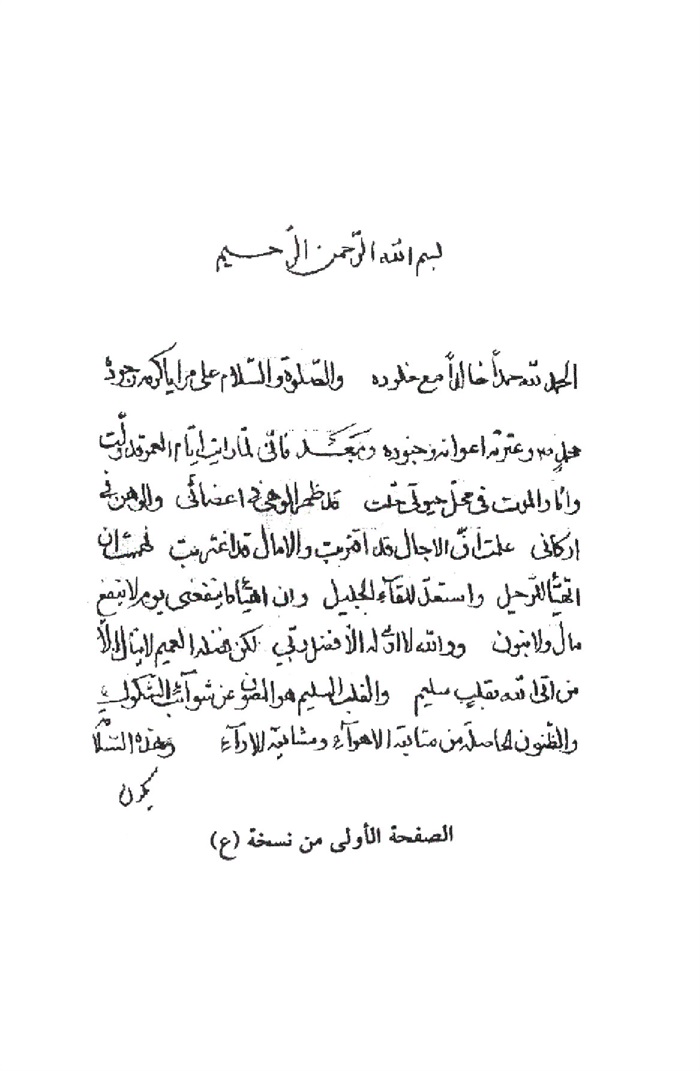 بسم الله الرّحمن الرّحيم
الحمد لله حمداً خالداً مع خلوده والصّلوة والسّلام على مرايا كرمه وجوده
محمد وعترته اعوانه وجنوده وبعد فانّى لمّا رات ايّام العمر قد ولّت
واثار الموت فى محلّ حيوتى حلّت قد ظهر الوهى فى اعضائى والوهن فى
اركانى علمت أنّ الاجال قد اقتربت والامال قد اغتربت فهممت ان
اتهيّأ للرّحيل واستعدّ للقاء الجليل وان اهيّأ ما ينفعنى يوم لا ينفع
مال ولا بنون ووالله لا اراه الّا فضل ربّي لكن فضله العميم لا ينال الّا
من اتى الله بقلبٍ سليم والقلب السليم هو المصون عن شوآئب الشكوك
والظّنون الحاصلة من متابعة الاهوآء ومشايعة الارآء وهذه السّلامة
يكون
الصفحة الأولى من نسخة (ع)